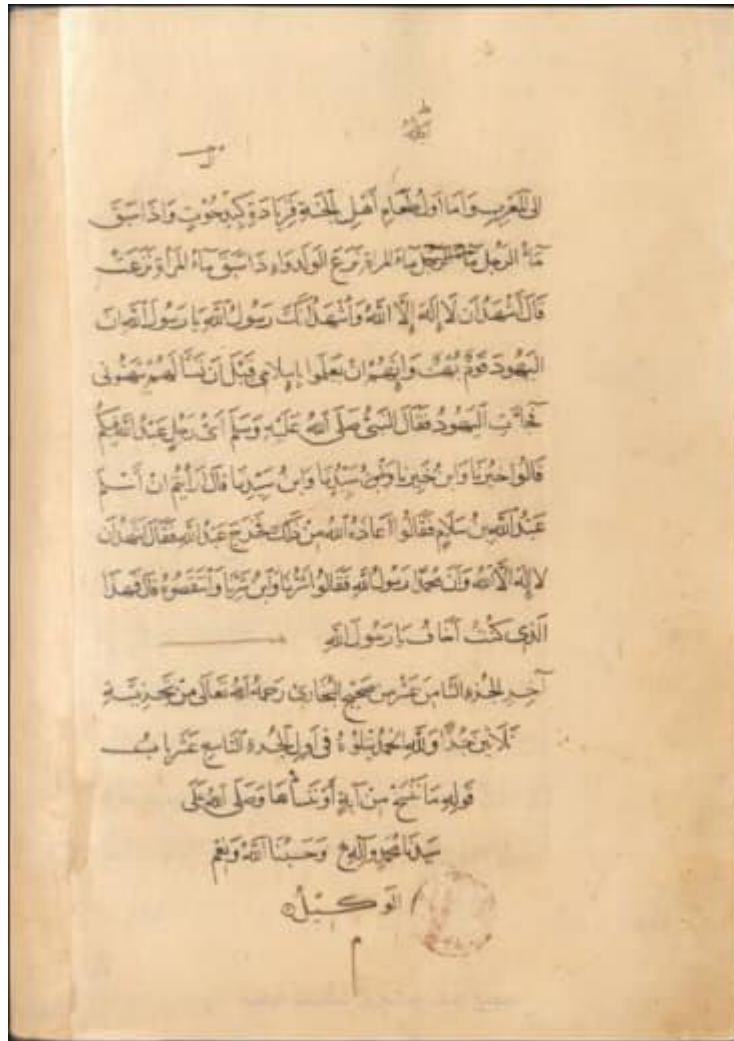 الى المغرب واما اول طعام اهل الجنة فزيادة كبد حوت واذا سبق
ماء الرجل ماء المراة نزع الولد واذا سبق ماء المراة نزعت
قال اشهد ان لا اله الا الله واشهد انك رسول الله يا رسول الله ان
اليهود قوم بهت وانهم ان يعلموا باسلامي قبل ان تسألهم يبهتوني
فجاءت اليهود فقال النبي صلى الله عليه وسلم اي رجل عبد الله فيكم
قالوا خيرنا وابن خيرنا وسيدنا وابن سيدنا قال ارأيتم ان أسلم
عبد الله بن سلام فقالوا اعاذه الله من ذلك فخرج عبد الله فقال اشهد ان
لا اله الا الله وان محمدا رسول الله فقالوا شرنا وابن شرنا وانتقصوه قال فهذا
الذي كنت أخاف يا رسول الله
آخر الجزء الثامن عشر من صحيح البخاري رحمه الله تعالى من تجزئة
ثلاثين جزءا ولله الحمد يتلوه في اول الجزء التاسع عشر باب
قوله ما ننسخ من آية أو ننسأها وصلى الله على
سيدنا محمد وآله وحسبنا الله ونعم
الوكيل